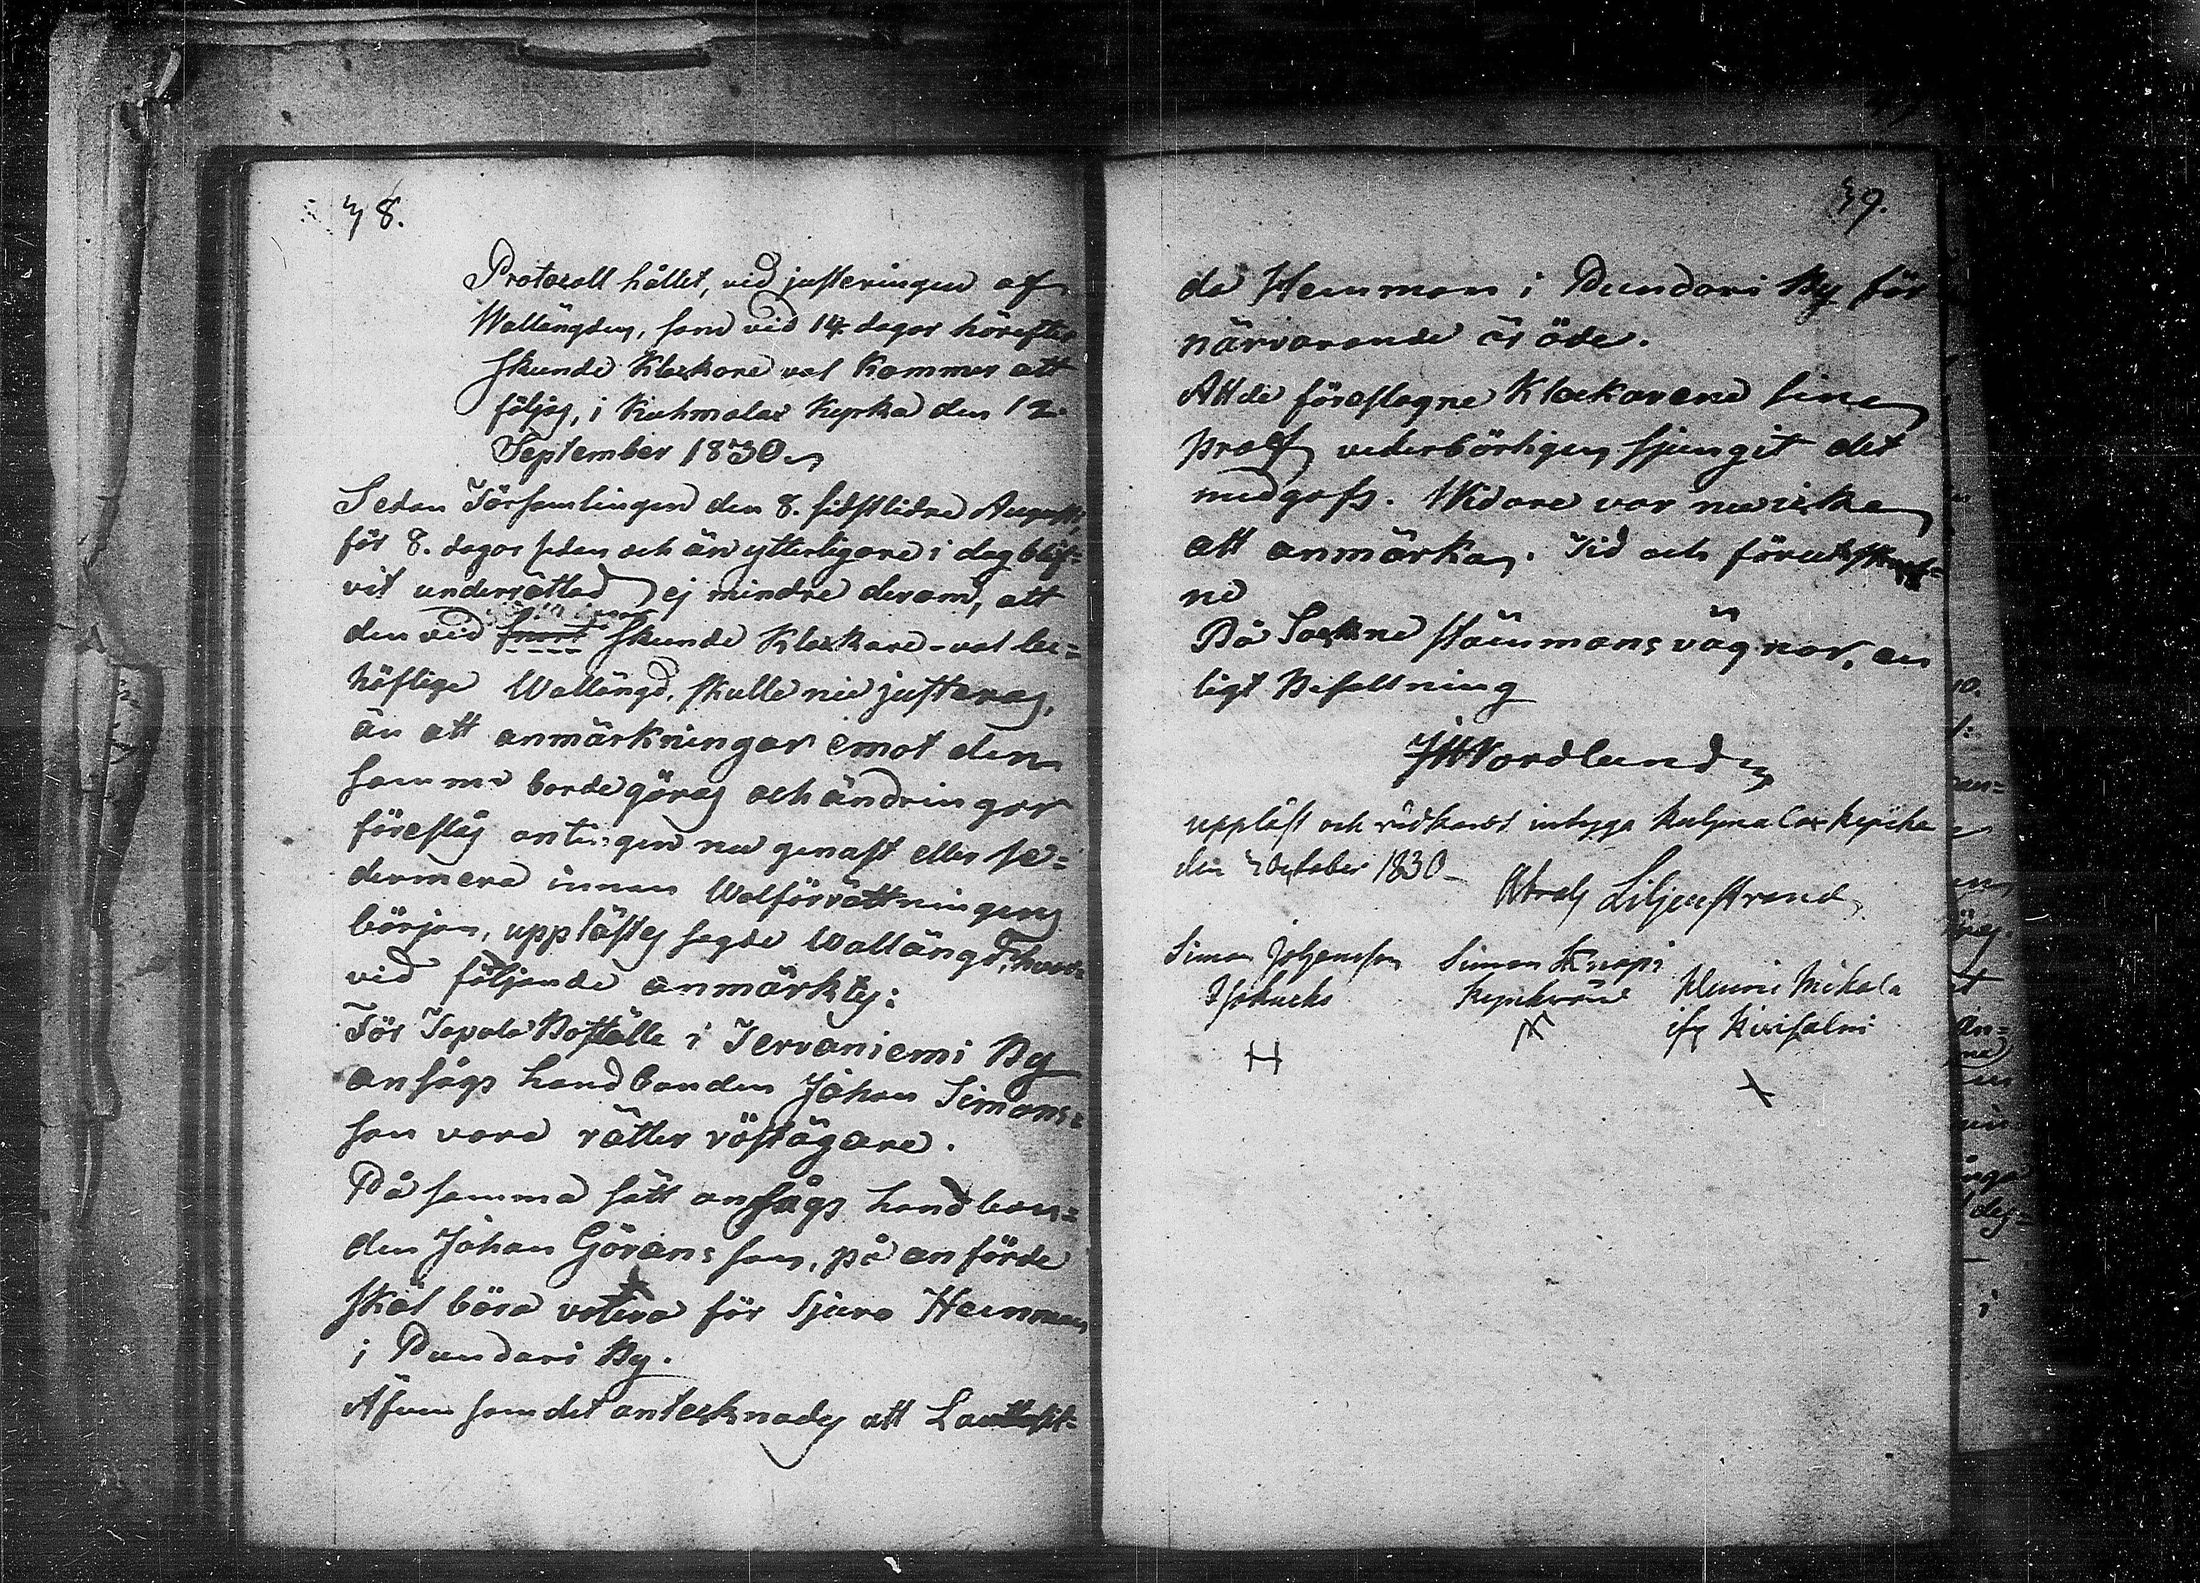 38.
Protocoll hållet, vid justeringen af
Wallängden, som vid 14. dagar härefter
skeende Klockare val kommer att
följas, i Kuhmalax Kyrka den 12
September 1830.
Sedan Församlingen den 8. sidstlidne Augusti,
för 8. dagar sedan och än ytterligare i dag blif-
vit underrättad, ej mindre derom, att
den vid snart skeende Klockare-val be-
höflige Wallängd, skulle nu justeras,
än att anmärkningar emot den
samma borde göras och ändringar
föreslås antingen nu genast eller se-
dermera innan Walförrättningens
början, upplästes sagde Wallängd, hvar-
vid följande anmärktes:
För Tapola Boställe i Tervaniemi By
ansågs landbonden Johan Simons-
son vara rätter röstägare.
På samma sätt ansågs landbon-
den Johan Görans son, på anförde
skäl böra votera för Sjura Hemman
i Pundari By.
Äfven som det antecknades att
39.
da Hemman i Pundari By för
närvarande är öde.
Att de föreslagne Klockarene sine
prof vederbörligen sjungit det
medgafs. Widare var nu icke
att anmärka. Tid och förutskref-
ne
På Sockne Stämmans vägnar, en
ligt Befallning
JH Nordlund
uppläst och vidkändt i Kuhmalax kyrka
den 3 October 1830
Abrah Liljenstrand
Simon Johansson Simon Knapi
Henric Mikala
H
X